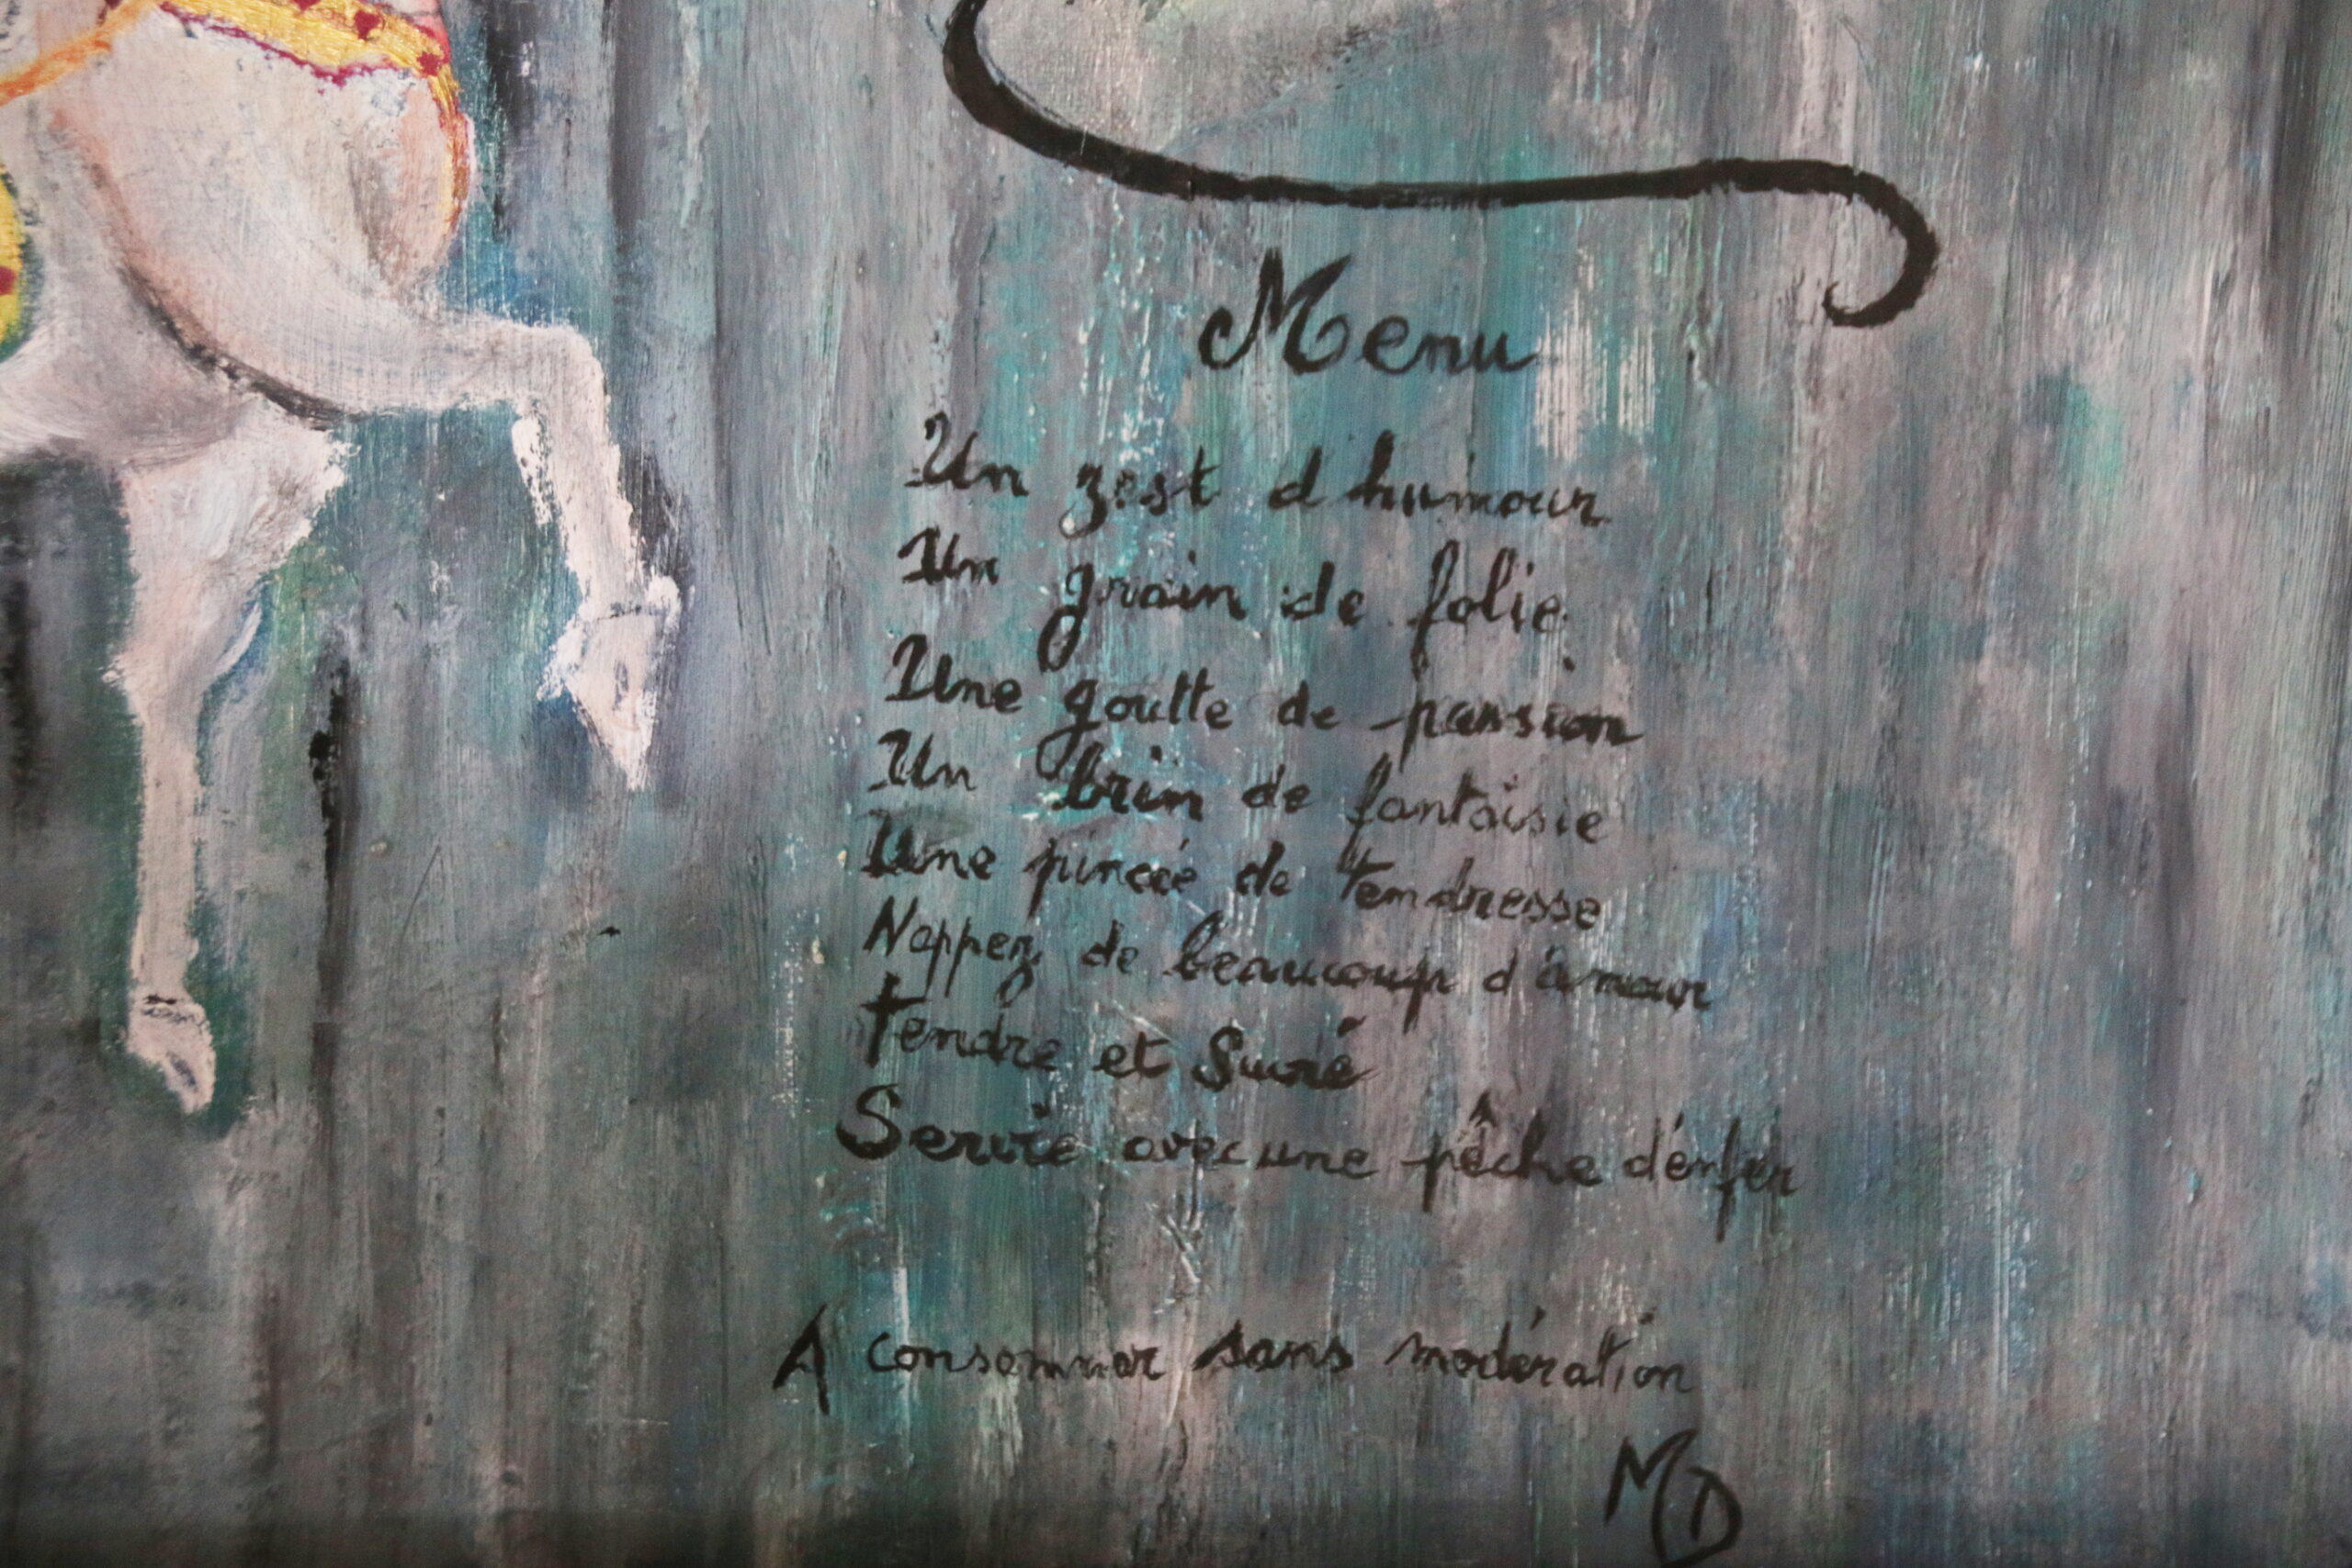 Menu
Un zest d'humour
Un grain de folie
Une goutte de passion
Un brin de fantaisie
Une pincée de tendresse
Napper de beaucoup d'amour
Tendre et Sucré
Servie avec une pêche d'enfer
A consommer sans modération
MD